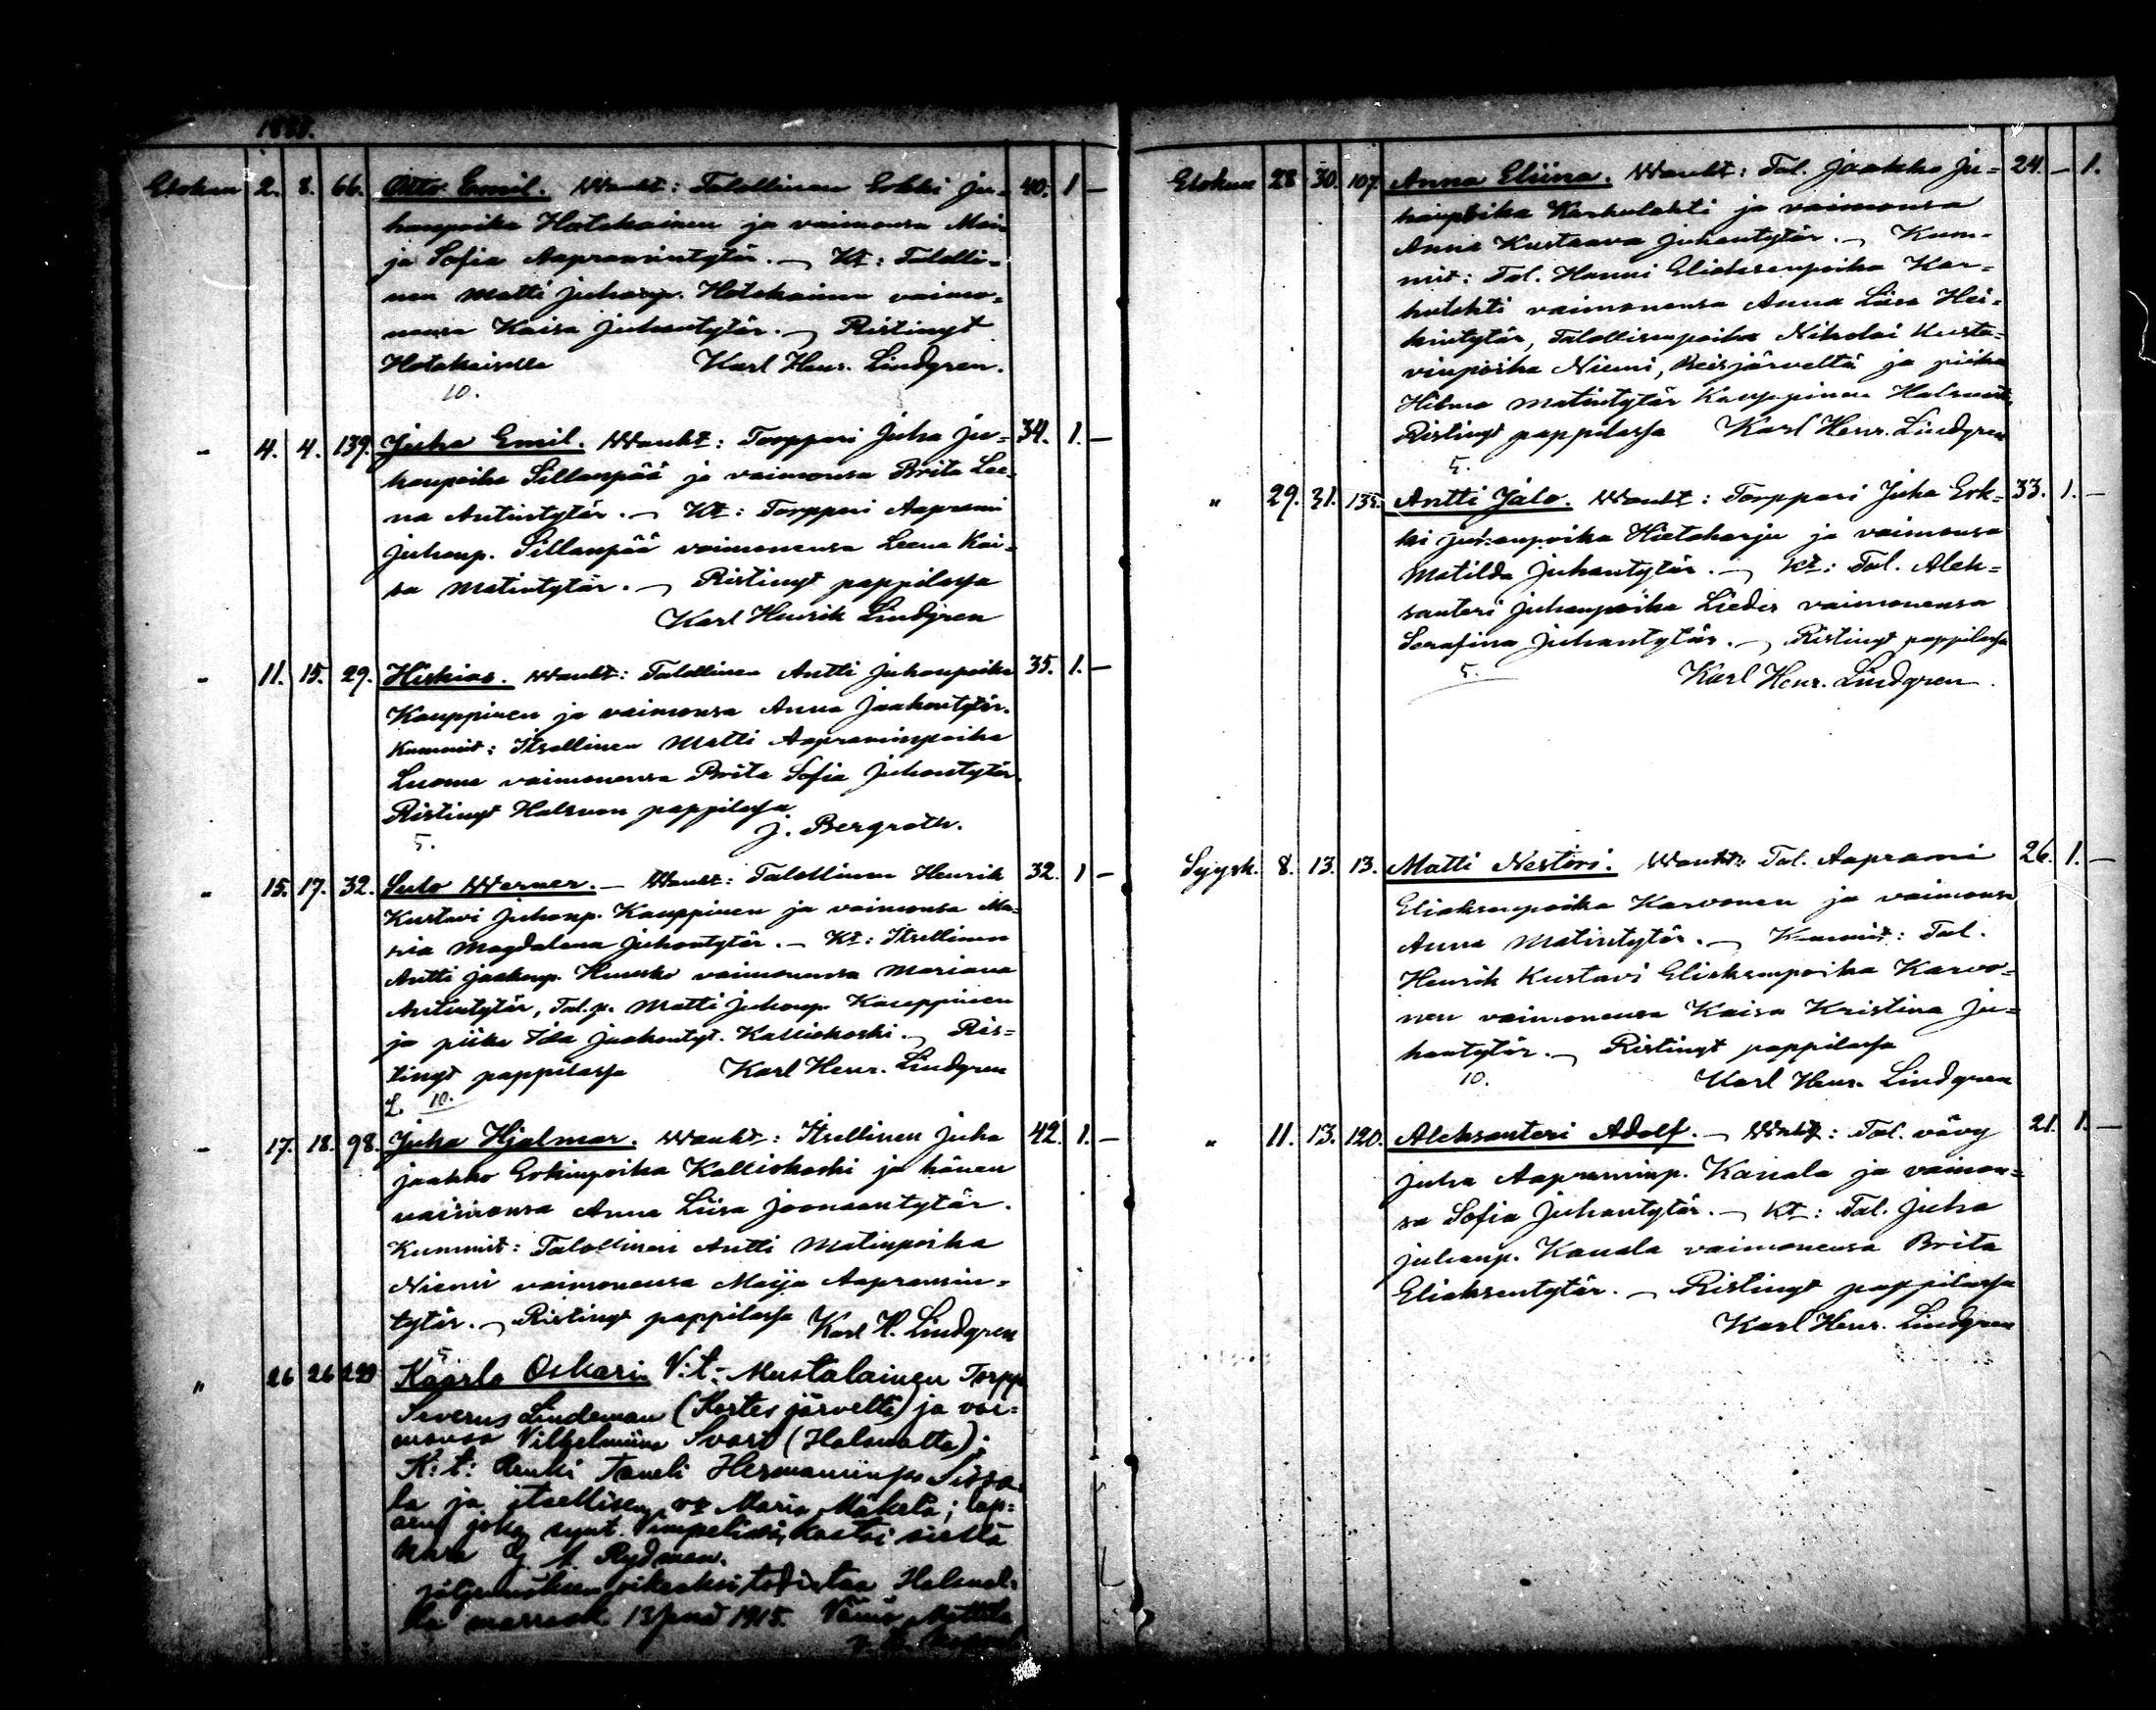 Elokuu 2. 8. 66. Otto Emil. Wanht: Talollinen Erkki Ju= 40. 1 —
hanpoika Hotakainen ja vaimonsa Mai=
ja Sofia Aapramintytär. — Kt: Talolli=
nen Matti Juhanp. Hotakainen vaimo=
nensa Kaisa Juhantytär. — Ristinyt
Hotakaisella Karl Henr. Lindgren.
10.
" 4. 4. 139. Juha Emil. Wanht: Torppari Juha Ju= 34. 1. —
hanpoika Sillanpää ja vaimonsa Brita Lee=
na Antintytär. — Kt: Torppari Aaprami
Juhanp. Sillanpää vaimonensa Leena Kai=
sa Matintytär. — Ristinyt pappilassa
Karl Henrik Lindgren
" 11. 15. 29. Hiskias. Wanht: Talollinen Antti Juhanpoika 35. 1. —
Kauppinen ja vaimonsa Anna Jaakontytär.
Kummit: Itsellinen Matti Aapraminpoika
Luoma vaimonensa Brita Sofia Juhantytär.
Ristinyt Halsuan pappilassa
J. Bergroth.
5.
" 15. 17. 32. Sulo Werner. — Wanht: Talollinen Henrik 32. 1 —
Kustavi Juhanp. Kauppinen ja vaimonsa Ma=
ria Magdalena Juhontytär. — Kt: Itsellinen
Antti Jaakonp. vaimonensa Mariana
Antintytär, Tal.p. Matti Juhonp. Kauppinen
ja piika Ida Jaakontyt. Kalliokoski. — Ris=
tinyt pappilassa Karl Henr. Lindgren
10.
" 17. 18. 98. Juha Hjalmar. Wanht: Itsellinen Juha 42. 1. —
Jaakko Erkinpoika Kalliokoski ja hänen
vaimonsa Anna Liisa Joonaantytär.
Kummit: Talollinen Antti Matinpoika
Niemi vaimonensa Maija Aapramin=
tytär. — Ristinyt pappilassa Karl H. Lindgren
5.
" 26 26 299 Kaarlo Oskari. V:t: Mustalainen Torpp.
Severus Lindeman (Kortesjärveltä) ja vai=
monsa Vilhelmiina Svart (Halsualta);
K:t: Renki Taneli Hermanninp.
la ja itsellisen vo Maria Mäkelä; lap=
sen, joka synt. Vimpelissä, kastoi siellä
A. Rydman.
jäljennöksen oikeaksi todistaa Halsual=
la marrask. 13 pnä 1915. Väinö Mattila
Elokuu 28 30. 107. Anna Eliina. Wanht: Tal. Jaakko Ju= 24. — 1.
hanpoika Karhulahti ja vaimonsa
Anna Kustaava Juhantytär. — Kum=
mit: Tal. Hannu Eliaksenpoika Kar=
hulahti vaimonensa Anna Liisa Hei=
kintytär, Talollisenpoika Nikolai Kusta=
vinpoika Niemi, Reisjärveltä ja piika
Hilma Matintytär Kauppinen Halsualta,
Ristinyt pappilassa Karl Henr. Lindgren
5.
" 29. 31. 135. Antti Jalo. Wanht: Torppari Juha Erk= 33. 1. —
ki Juhanpoika Hietaharju ja vaimonsa
Matilda Juhantytär. — Kt: Tal. Alek=
santeri Juhanpoika Liedes vaimonensa
Serafina Juhantytär. — Ristinyt pappilassa
5. Karl Henr. Lindgren.
Syysk. 8. 13. 13. Matti Nestori. Wanht: Tal. Aaprami 26. 1. —
Eliaksenpoika Karvonen ja vaimonsa
Anna Matintytär. — Kummit: Tal.
Henrik Kustavi Eliaksenpoika Karvo=
nen vaimonensa Kaisa Kristina Ju=
hantytär. — Ristinyt pappilassa
10. Karl Henr. Lindgren
" 11. 13. 120. Aleksanteri Adolf. — Wanht: Tal. vävy 21. 1. —
Juha Aapraminp. Kanala ja vaimon=
sa Sofia Juhantytär. — Kt: Tal. Juha
Juhanp. Kanala vaimonensa Brita
Eliaksentytär. — Ristinyt pappilassa
Karl Henr. Lindgren